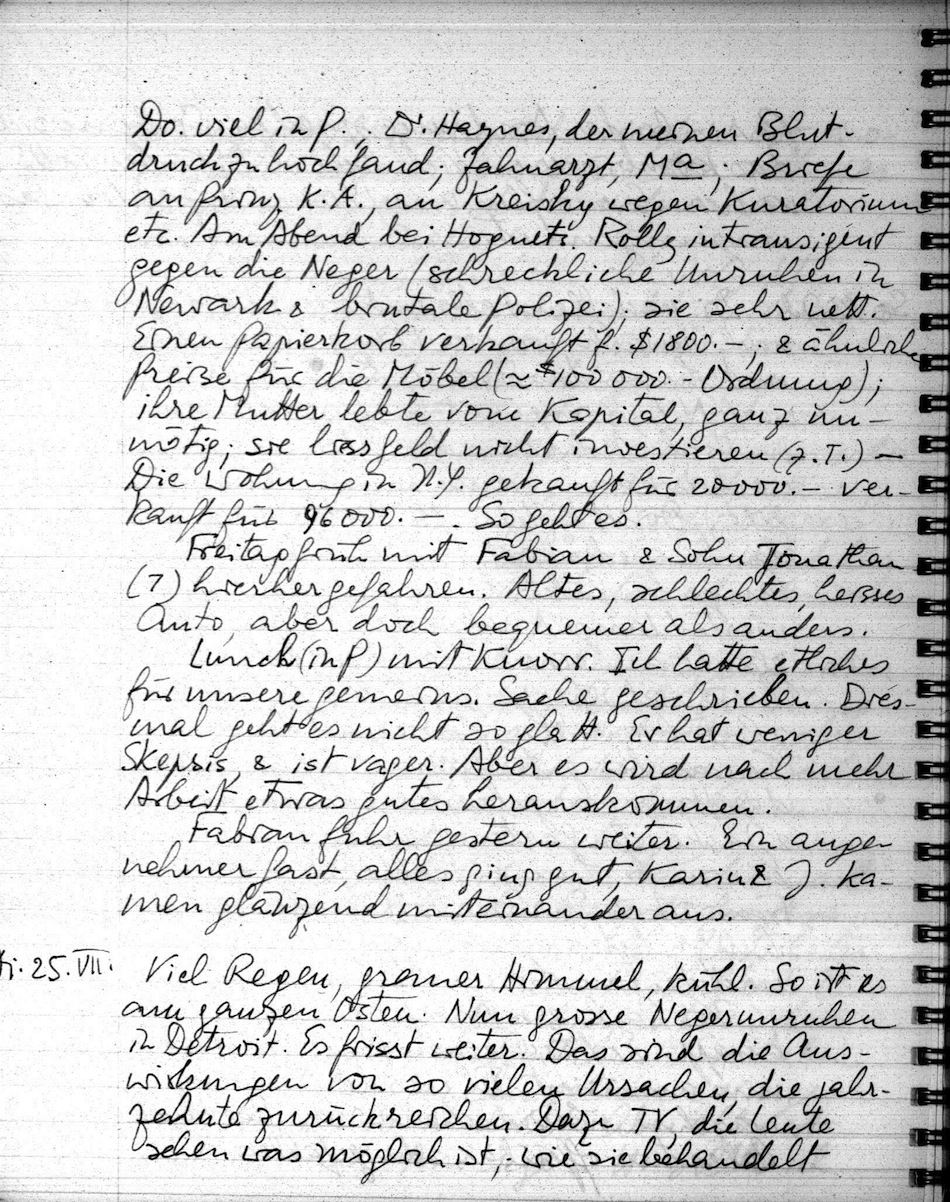 Do. viel in P.. Dr. Haynes, der meinen Blut-
druck zu hoch fand; Zahnarzt, Ma; Briefe
an Prinz K.A., an Kreisky wegen Kuratorium
etc. Am Abend bei Hoguets. Rolly intransigent
gegen die Neger (schreckliche Unruhen in
Newark & brutale Polizei); sie sehr nett.
Einen Papierkorb verkauft f. $1800.–; & ähnliche
Preise für die Möbel (≈ $100 000.- Ordnung);
ihre Mutter lebte vom Kapital, ganz un-
nötig; sie liess Geld nicht investieren (z.T.) –
Die Wohnung in N.Y. gekauft für 20000.– ver-
kauft für 96000.–. So geht es.
Freitag früh mit Fabian & Sohn Jonathan
(7) hierher gefahren. Altes, schlechtes, heisses
Auto, aber doch bequemer als anders.
Lunch (in P) mit Knorr. Ich hatte etliches
für unsere gemeins. Sache geschrieben. Dies-
mal geht es nicht so glatt. Er hat weniger
Skepsis, & ist vager. Aber es wird nach mehr
Arbeit etwas gutes herauskommen.
Fabian fuhr gestern weiter. Ein ange-
nehmer Gast, alles ging gut, Karin & J. ka-
men glänzend miteinander aus.
Di. 25. VII. Viel Regen, grauer Himmel, kühl. So ist es
am ganzen Osten. Nun grosse Negerunruhen
in Detroit. Es frisst weiter. Das sind die Aus-
wirkungen von so vielen Ursachen, die jahr-
zehnte zurückreichen. Dazu TV, die Leute
sehen was möglich ist, wie sie behandelt